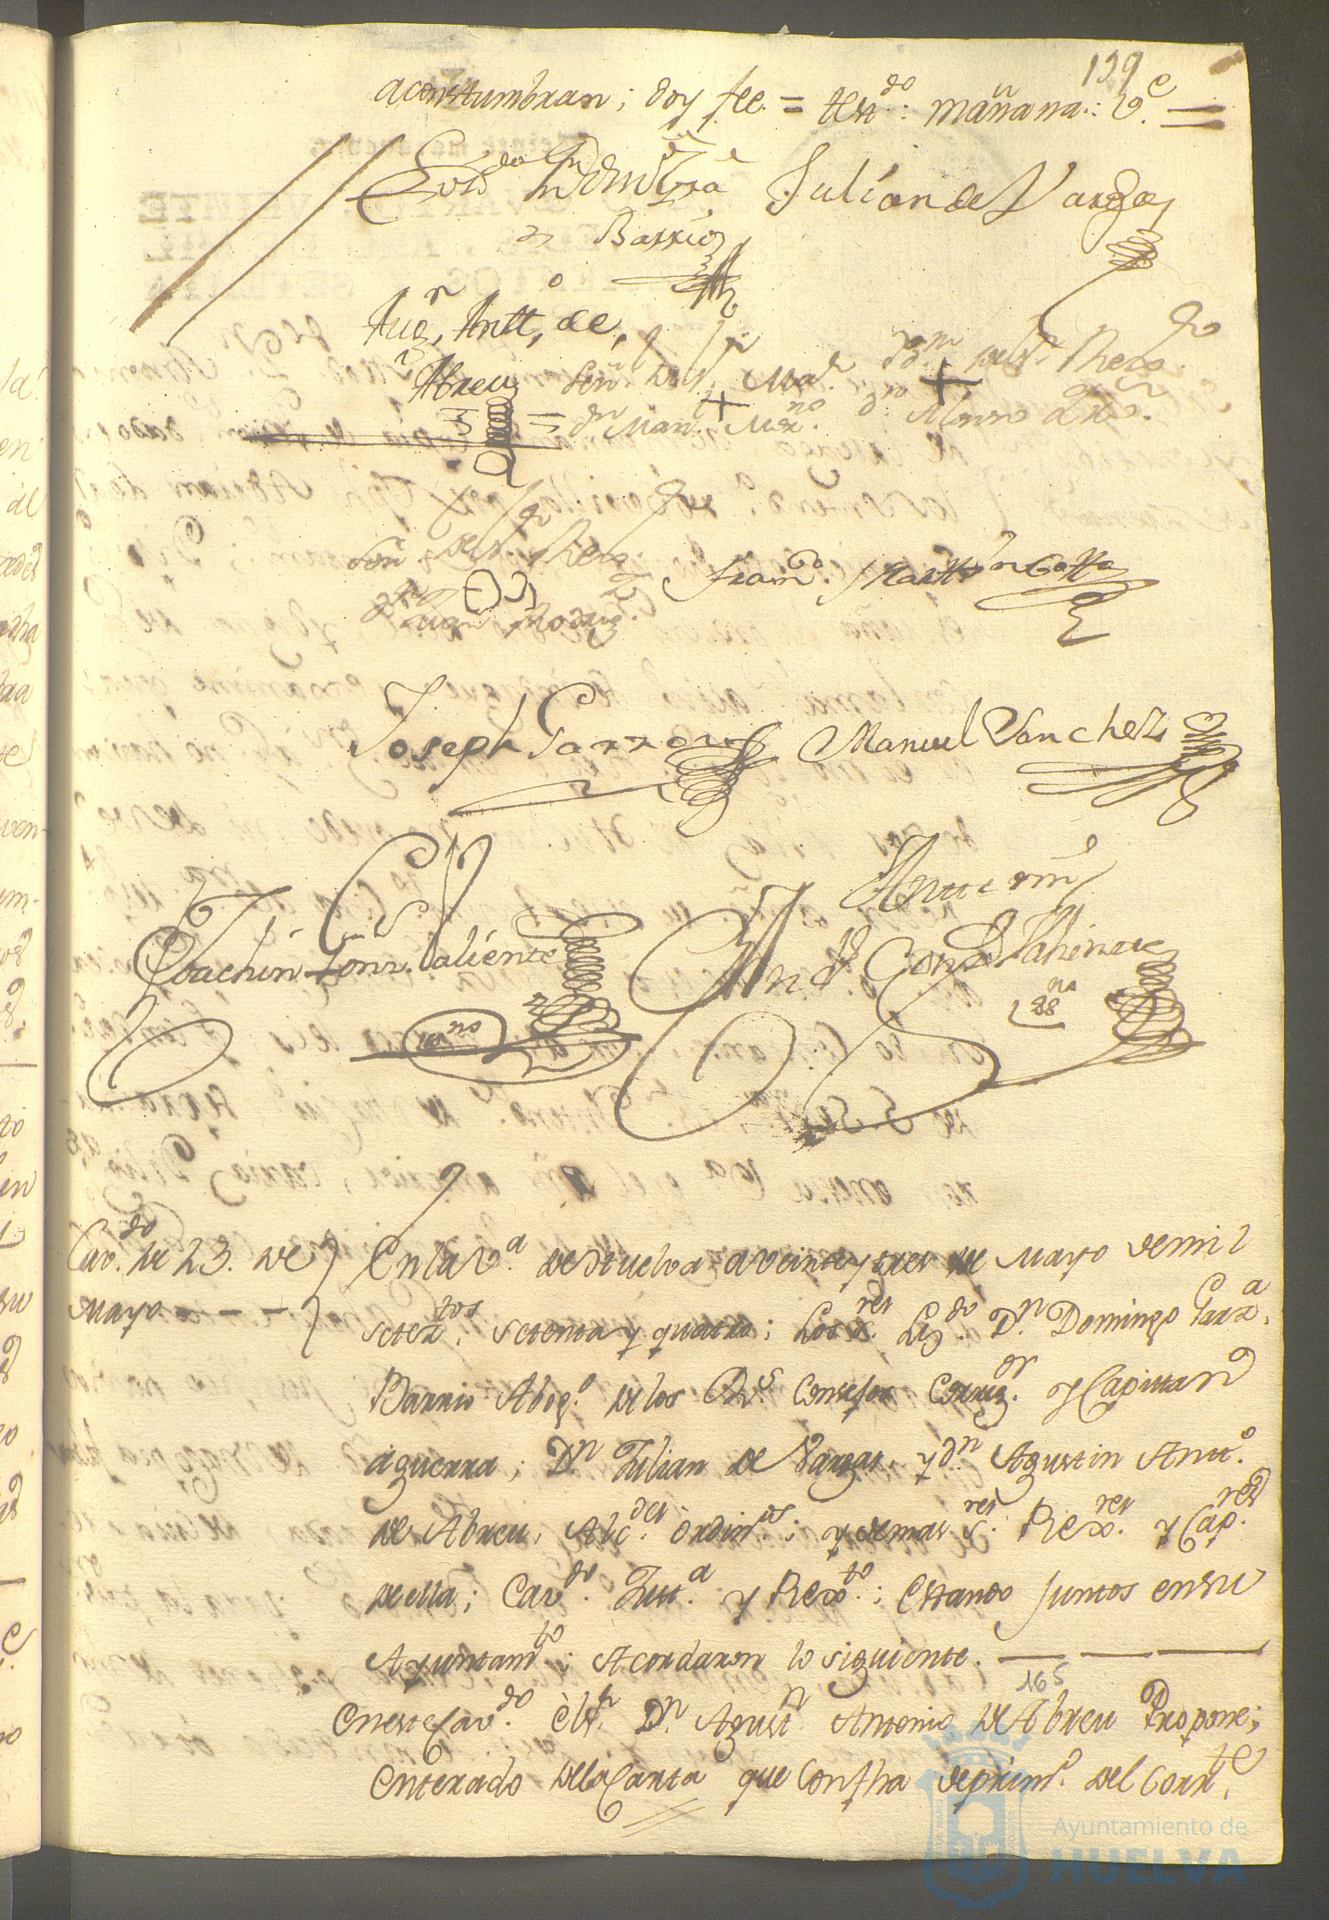 139
acostumbran; doy fee. = testdo: mañana: Ve =
Julian de Vargas
Barrio
Augn Antto de
Abreu Señl del Rexr
= dn Mann Mrno
Señl del Rexr
Juan Rodrigz
Franco Martin Caffa
Joseph Garzon Manuel Sanchez
Ante mi
Joachin Gonz. Valiente
no
Cavdo de 23. de
Mayo - - -
En la Va de Huelva a veinte y tres de Mayo de mil
seteztos setenta y quatro; Los Sres Lizdo Dn Domingo Garza
Barrio Abogo de los Rs Consejos Corregor y Capitan
a guerra; Dn Julian de Vargas, y dn Agustin Anto
de Abreu, Alcdes ordins; y demas Sres Rexres y Capres
de ella; Cavdo Justa y Rexto; estando juntos en su
Ayuntamto; Acordaron lo siguiente. — — —
165
En este Cavdo el Sr Dn Agustn Antonio de Abreu Propone;
Enterado de la Carta que con fha de primo del Corrte
Ayuntamiento de
HUELVA